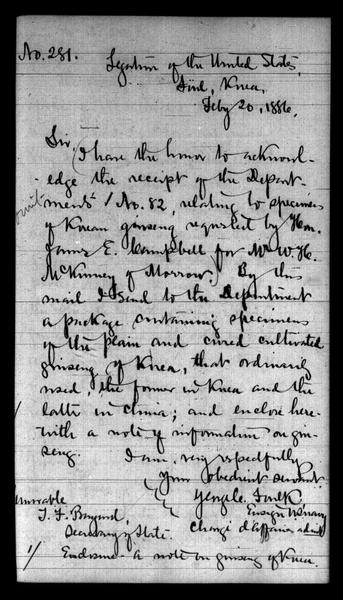 No. 281.
Legation of the United States,
Söul, Korea,
Feby 20, 1886.
Sir,
I have the honor to acknowl-
edge the receipt of the Depart-
ment's No. 82, relating to specimens
of Korean ginseng requested by Hon.
James E. Campbell for Mr. W. H.
McKinney of Morrow. By this
mail I send to the Department
a package containing specimens
of the plain and cured cultivated
ginseng of Korea, that ordinarily
used, the former in Korea and the
latter in China; and enclose here-
with a note of information on gin-
seng.
I am, very respectfully
Your obedient servant
George C. Foulk
Ensign U.S. Navy
Chargé d'Affaires ad int.
Honorable
T. F. Bayard,
Secretary of State.
1/ Enclosure - a note on ginseng of Korea.